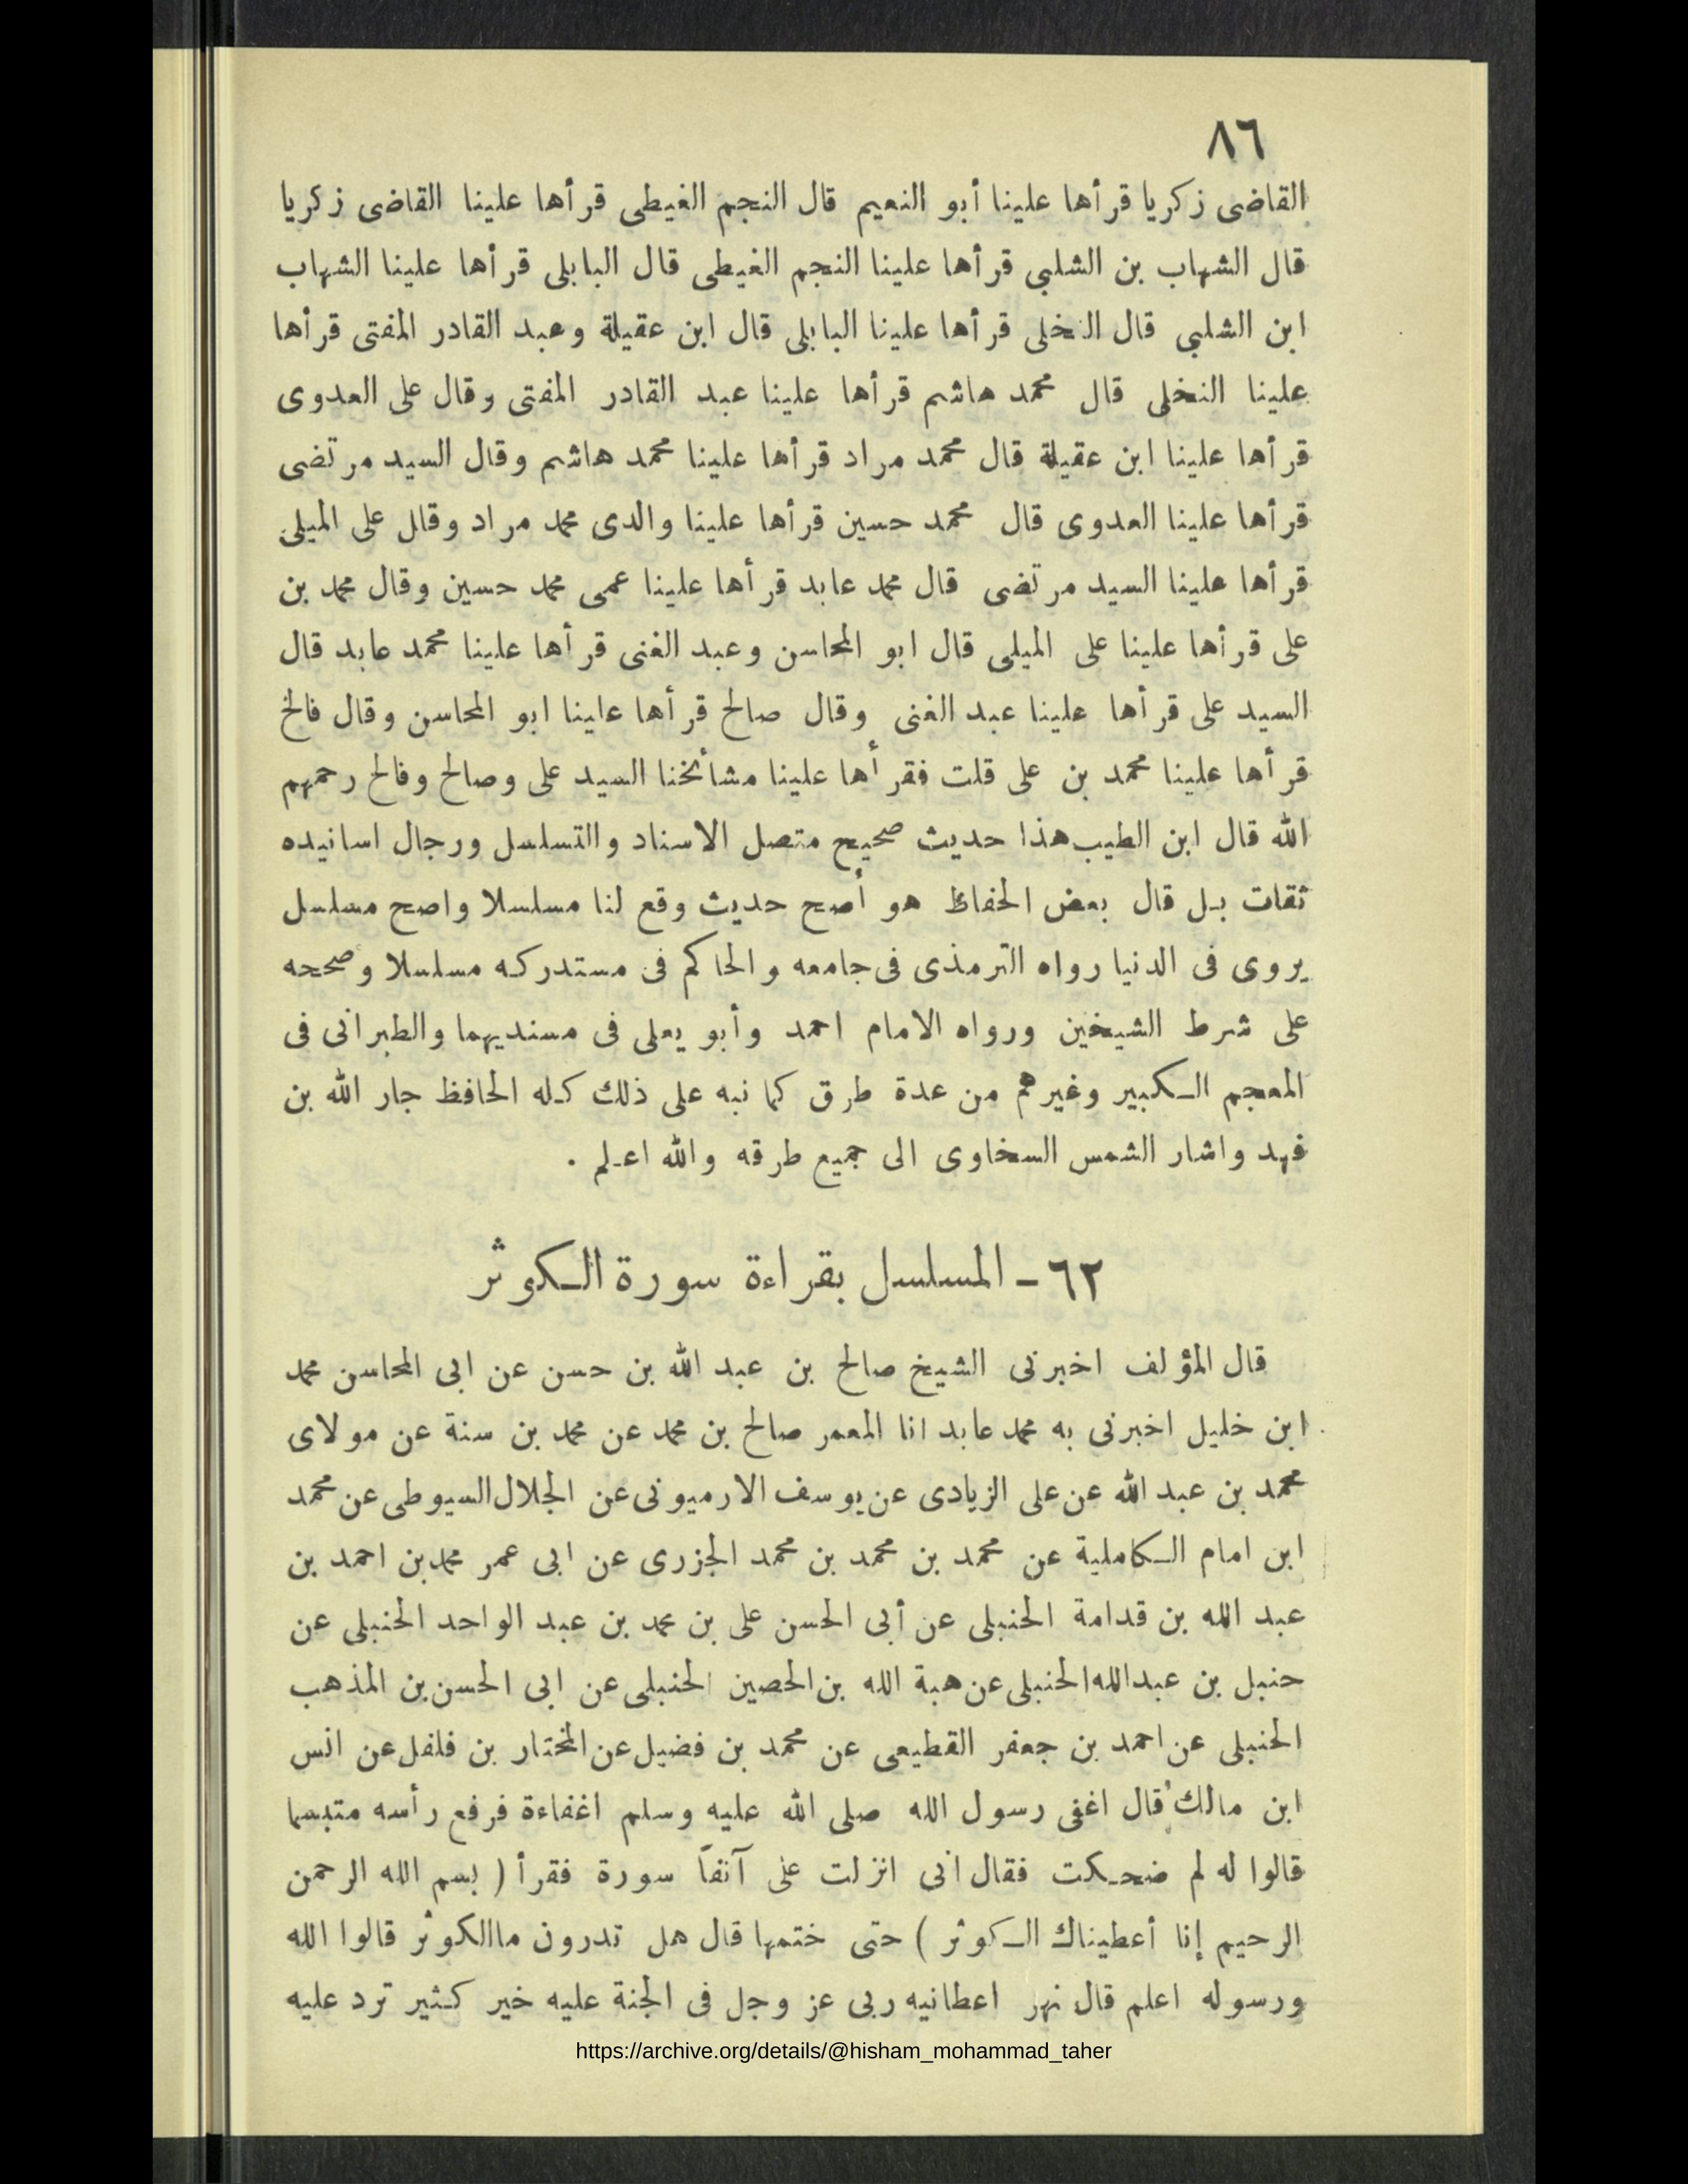 ٨٦
القاضى زكريا قرأها علينا أبو النعيم قال النجم الغيطى قرأها علينا القاضى زكريا
قال الشهاب بن الشلبي قرأها علينا النجم الغيطى قال البابلى قرأها علينا الشهاب
ابن الشلبي قال النخلى قرأها علينا البابلى قال ابن عقيلة وعبد القادر المفتى قرأها
علينا النخلى قال محمد هاشم قرأها علينا عبد القادر المفتى وقال على العدوى
قرأها علينا ابن عقيلة قال محمد مراد قرأها علينا محمد هاشم وقال السيد مرتضى
قرأها علينا العدوى قال محمد حسين قرأها علينا والدى محمد مراد وقال على الميلى
قرأها علينا السيد مرتضى قال محمد عابد قرأها علينا عمى محمد حسين وقال محمد بن
على قرأها علينا على الميلى قال ابو المحاسن وعبد الغنى قرأها علينا محمد عابد قال
السيد على قرأها علينا عبد الغنى وقال صالح قرأها علينا ابو المحاسن وقال فالح
قرأها علينا محمد بن على قلت فقرأها علينا مشائخنا السيد على وصالح وفالح رحمهم
الله قال ابن الطيب هذا حديث صحيح متصل الاسناد والتسلسل ورجال اسانيده
ثقات بل قال بعض الحفاظ هو أصح حديث وقع لنا مسلسلا واصح مسلسل
يروى فى الدنيا رواه الترمذى فى جامعه والحاكم فى مستدركه مسلسلا وصححه
على شرط الشيخين ورواه الامام احمد وأبو يعلى فى مسنديهما والطبرانى فى
المعجم الكبير وغيرهم من عدة طرق كما نبه على ذلك كله الحافظ جار الله بن
فهد واشار الشمس السخاوى الى جميع طرقه والله اعلم .
٦٢ - المسلسل بقراءة سورة الكوثر
قال المؤلف اخبرنى الشيخ صالح بن عبد الله بن حسن عن ابى المحاسن محمد
ابن خليل اخبرنى به محمد عابد انا المعمر صالح بن محمد عن محمد بن سنة عن مولاى
محمد بن عبد الله عن على الزيادى عن يوسف الارميونى عن الجلال السيوطى عن محمد
ابن امام الكاملية عن محمد بن محمد بن محمد الجزرى عن ابى عمر محمد بن احمد بن
عبد الله بن قدامة الحنبلى عن أبى الحسن على بن محمد بن عبد الواحد الحنبلى عن
حنبل بن عبد الله الحنبلى عن هبة الله بن الحصين الحنبلى عن ابى الحسن بن المذهب
الحنبلى عن احمد بن جعفر القطيعى عن محمد بن فضيل عن المختار بن فلفل عن انس
ابن مالك قال اغفى رسول الله صلى الله عليه وسلم اغفاءة فرفع رأسه متبسما
قالوا له لم ضحكت فقال انى انزلت على آنفاً سورة فقرأ ( بسم الله الرحمن
الرحيم إنا أعطيناك الكوثر ) حتى ختمها قال هل تدرون ما الكوثر قالوا الله
ورسوله اعلم قال نهر اعطانيه ربى عز وجل فى الجنة عليه خير كثير ترد عليه
https://archive.org/details/@hisham_mohammad_taher